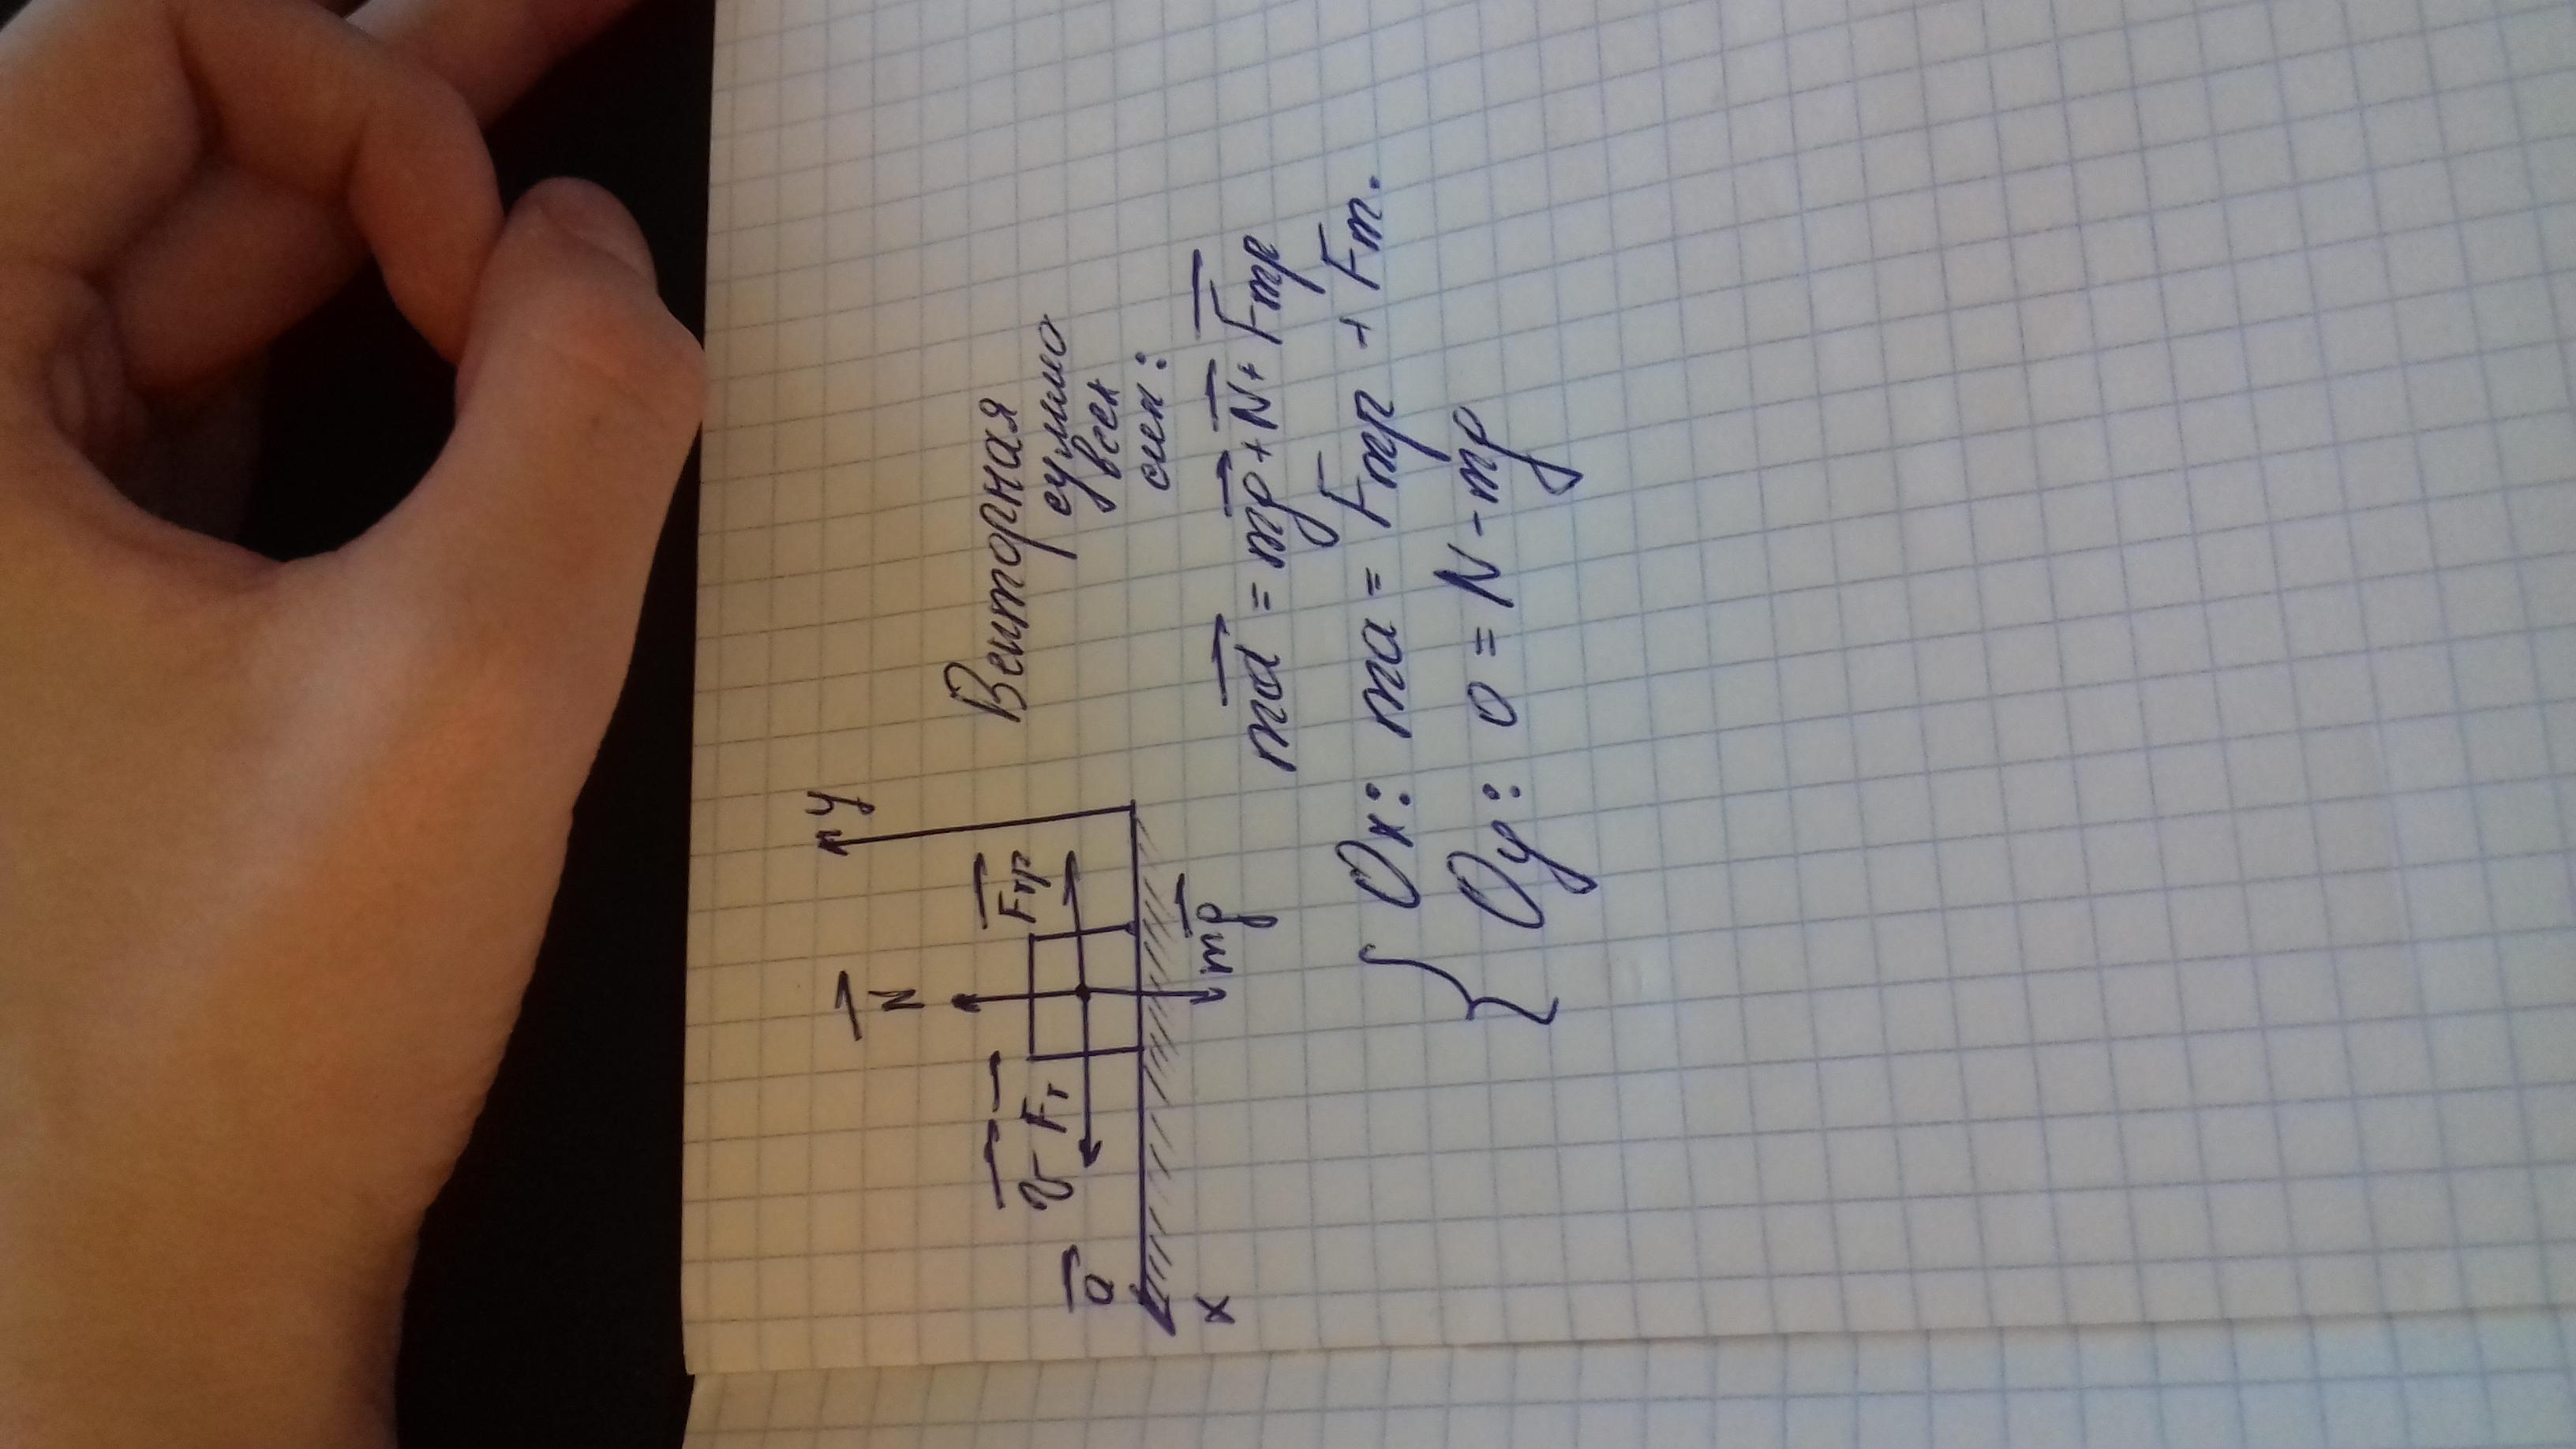 y
N
v Fт Fтр
a
x
mg
Векторная
сумма
всех
сил:
ma = mg + N + Fтр
Ox: ma = Fтр + Fт.
Oy: 0 = N - mg